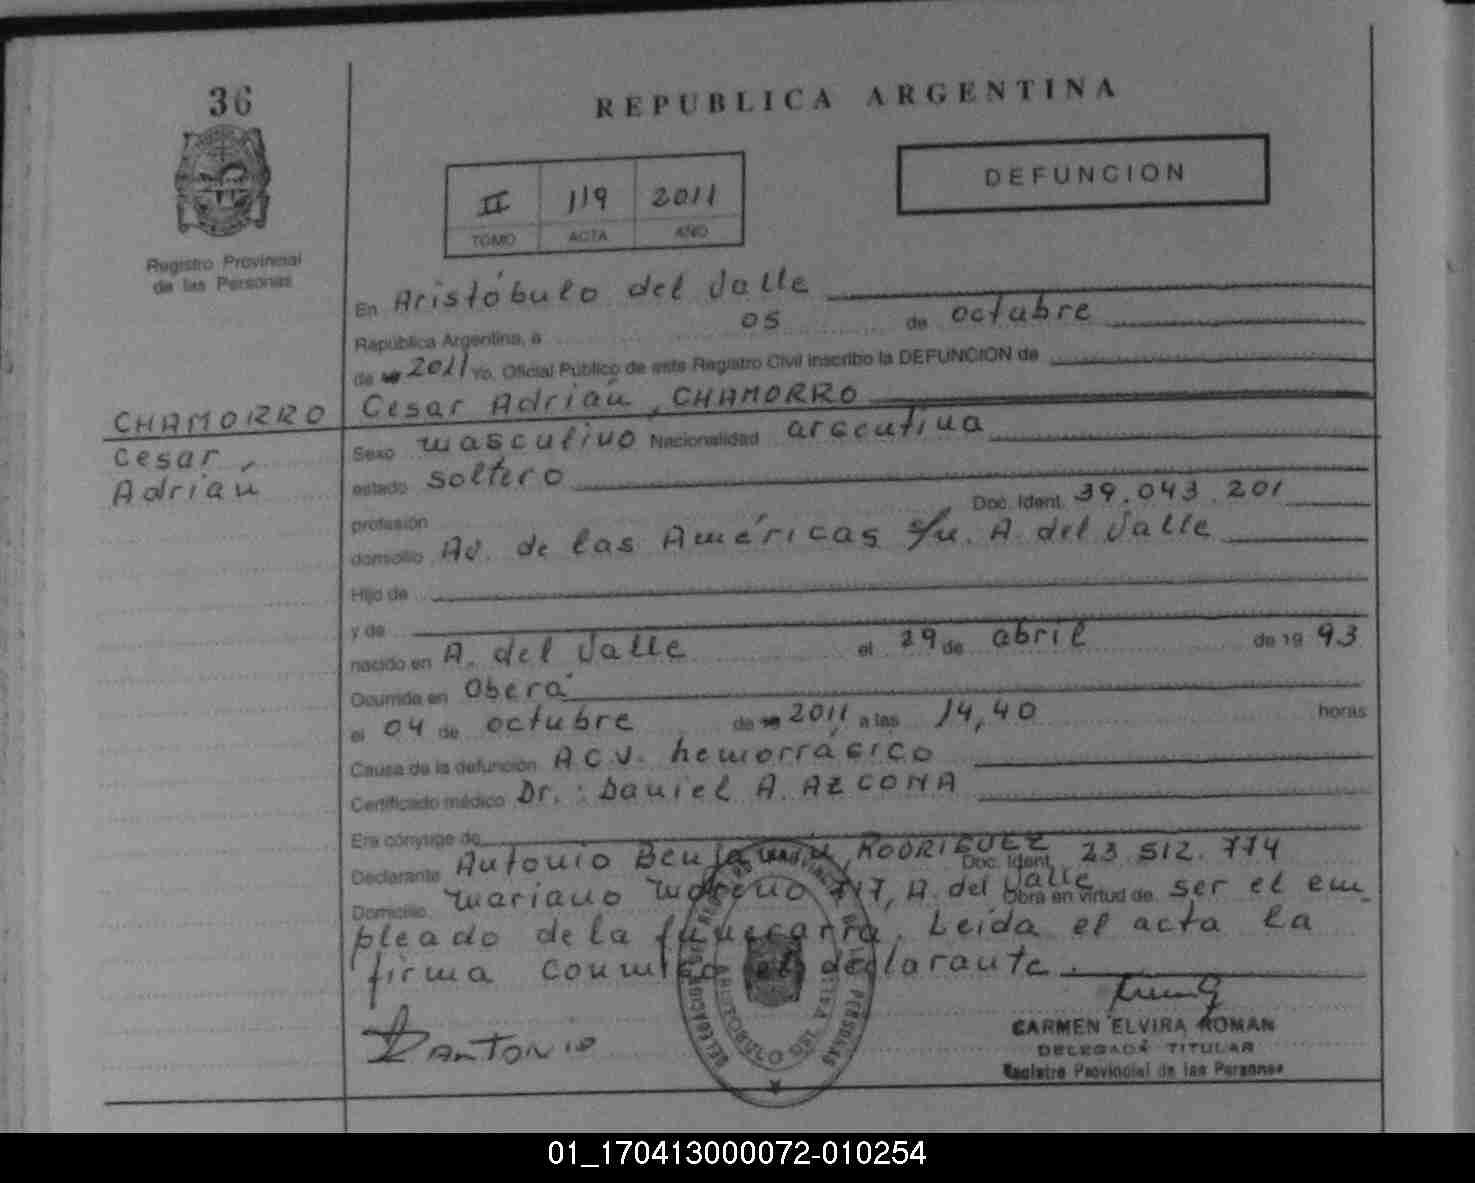 36
REPUBLICA ARGENTINA
DEFUNCION
II 119 2011
TOMO ACTA AÑO
Registro Provincial
de las Personas
En Aristóbulo del Valle
República Argentina, a 05 de octubre
de 2011 Yo, Oficial Público de este Registro Civil inscribo la DEFUNCION de
CHAMORRO
Cesar Adrián, CHAMORRO
Cesar
Adrian
Sexo masculino Nacionalidad argentina
estado soltero
profesión Doc. Ident. 39.043.201
domicilio Av. de las Américas s/n. A. del Valle
Hijo de
y de
nacido en A. del Valle el 29 de abril de 19 93
Ocurrida en Oberá
el 04 de octubre de 2011 a las 14,40 horas
Causa de la defunción A.C.V. hemorrágico
Certificado médico Dr.: Daniel A. AZCONA
Era cónyuge de
Declarante Antonio Benjamín, RODRIGUEZ Doc. Ident. 23.512.774
Domicilio Mariano Moreno 717, A. del Valle Obra en virtud de ser el em
pleado de la funeraria. Leída el acta la
firma conmigo el declarante.
ANTONIO
CARMEN ELVIRA ROMAN
DELEGADA TITULAR
Registro Provincial de las Personas
ARISTOBULO DEL VALLE
01_170413000072-010254